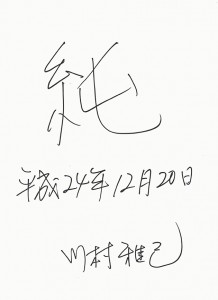 純
平成24年12月20日
川村雅己